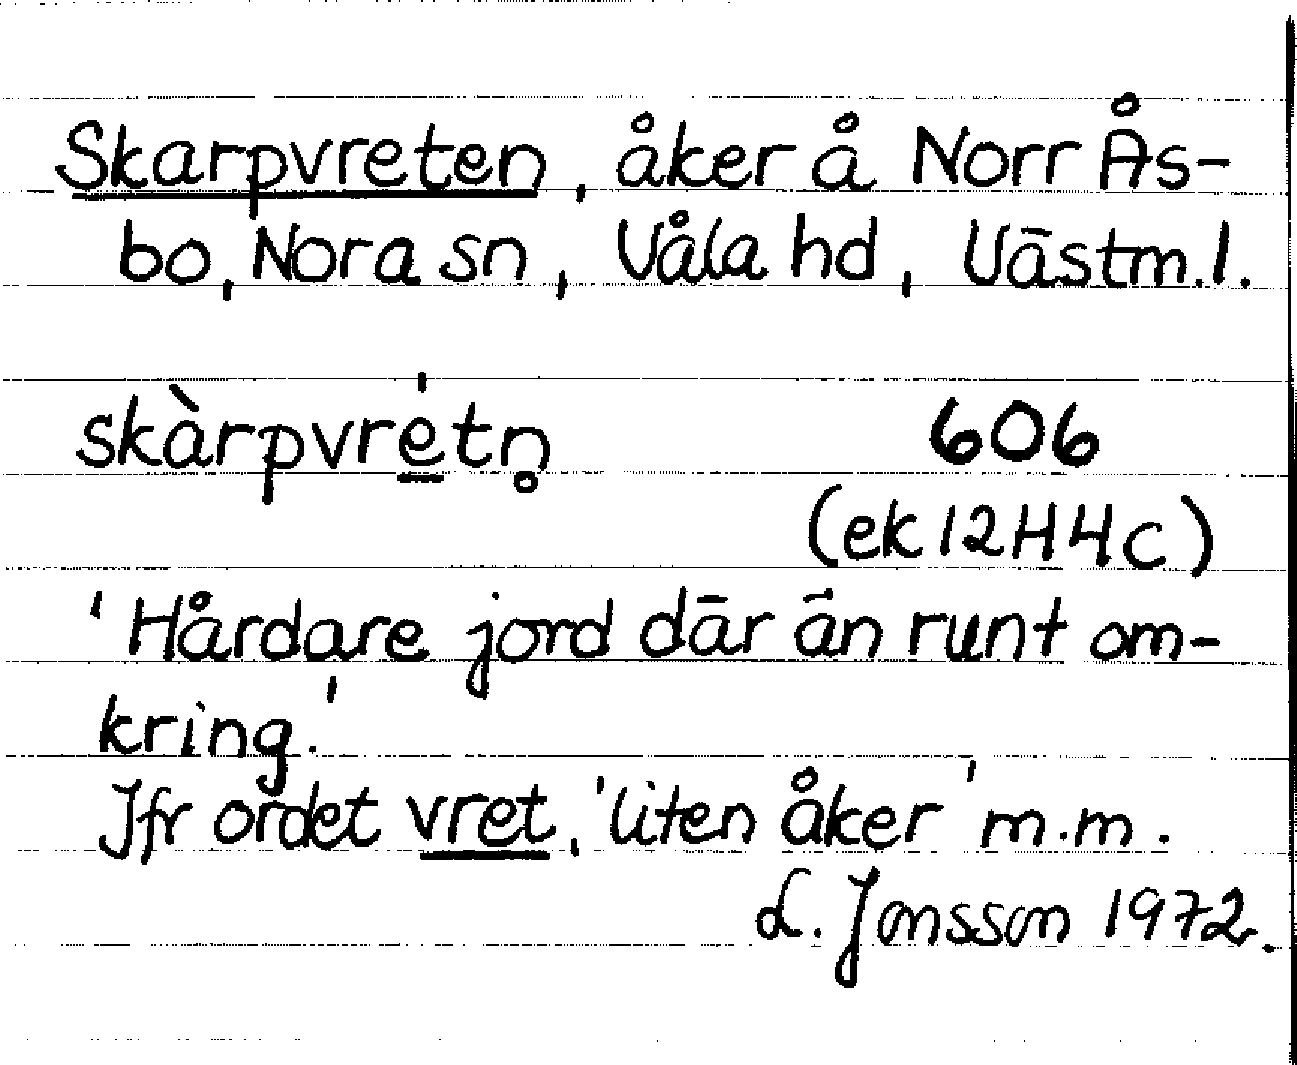 Skarpvreten, åker å Norr Ås-
bo, Nora sn, Våla hd, Västm.l.
skàrpvrétn̥ 606
(ek 12H4c)
'Hårdare jord där än runt om-
kring.'
Jfr ordet vret, 'liten åker' m.m.
L. Jonsson 1972.